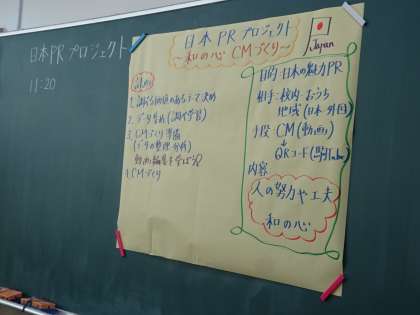 日本PRプロジェクト
11:20
日本PRプロジェクト
～和の心 CMづくり～
Japan
1.調べる価値のあるテーマ決め
2.データ集め(調べ学習)
3.CMづくり準備
(データの整理・分析)
動画の編集を学ぼう
4.CMづくり
目的:日本の魅力PR
相手:校内・おうち
地域(日本・外国)
手段:CM(動画)
QRコード
内容
人の努力や工夫
和の心